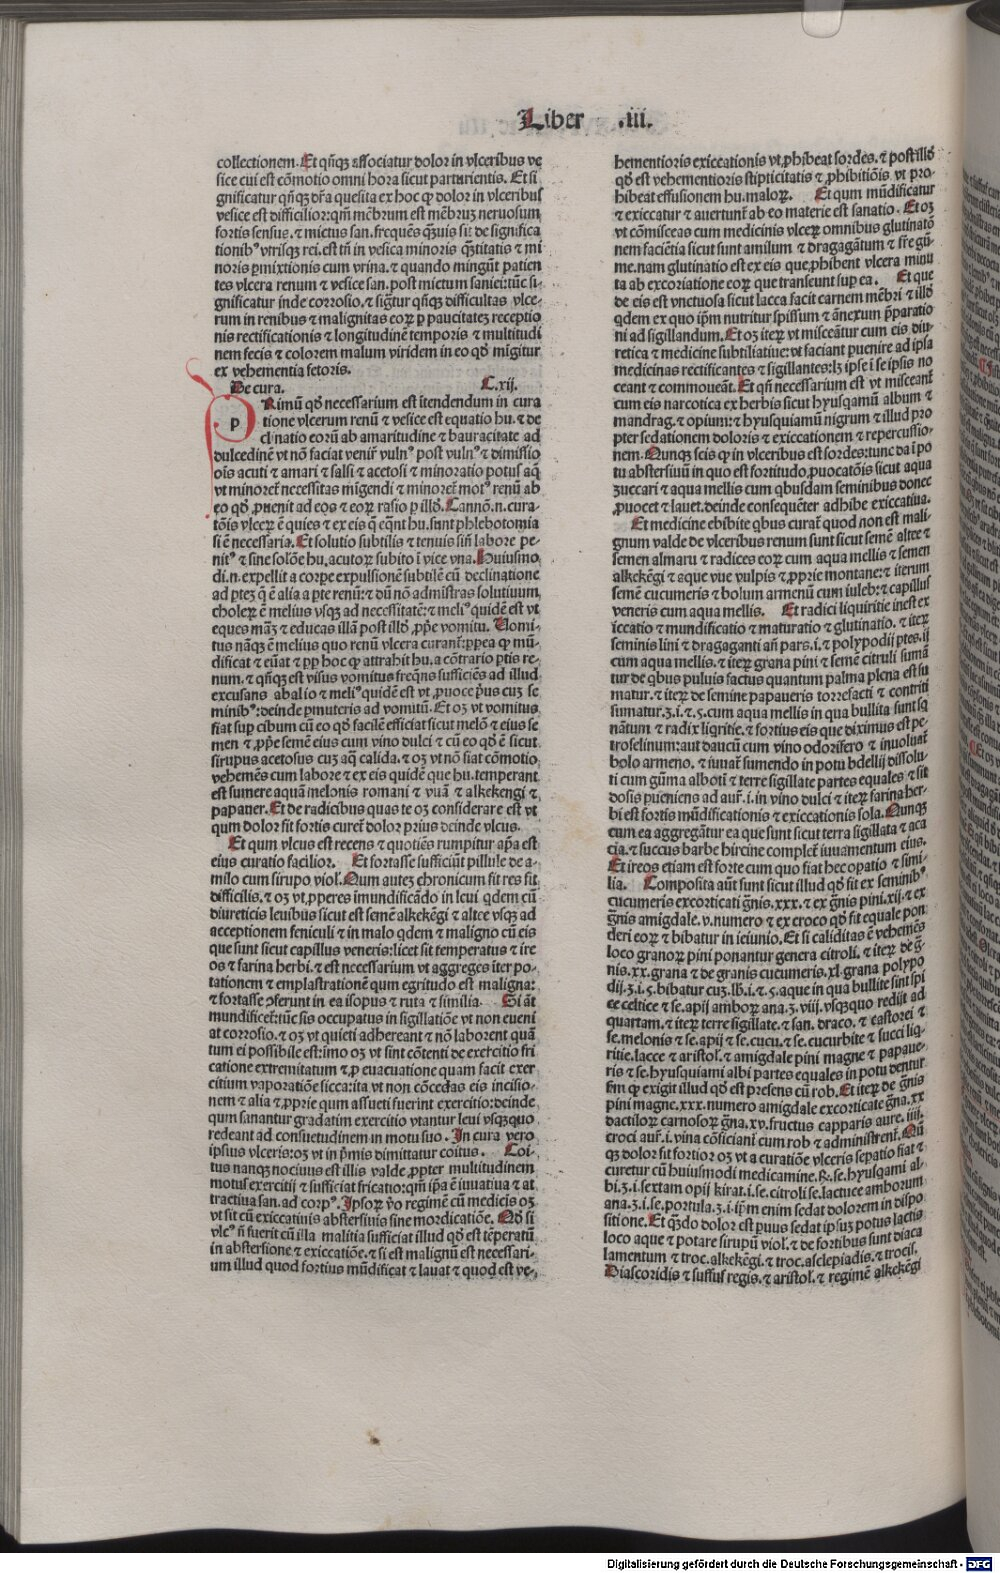 Liber .iii.
collectionem. Et qñqꝫ associatur dolor in vlceribus ve
sice cui est cōmotio omni hora sicut parturientis. Et si
gnificatur qñqꝫ dr̄a quesita ex hoc ꝙ dolor in vlceribus
vesice est difficilior: qm̄ mēbrum est mēbruꝫ neruosum
fortis sensus. ⁊ mictus san. frequēs qͣuis sit de significa
tionibꝰ vtrisqꝫ rei. est tñ in vesica minoris qͣtitatis ⁊ mi
noris ꝑmixtionis cum vrina. ⁊ quando mingūt patien
tes vlcera renum ⁊ vesice san. post mictum saniei: tūc si
gnificatur inde corrosio. ⁊ sigt̄ur qñqꝫ difficultas vlce
rum in renibus ⁊ malignitas eoꝝ ꝑ paucitateꝫ receptio
nis rectificationis ⁊ longitudinē temporis ⁊ multitudi
nem fecis ⁊ colorem malum viridem in eo qd̄ migitur
ex vehementia fetoris.
De cura. C. xij.
PRimū qd̄ necessarium est ītendendum in cura
tione vlcerum renū ⁊ vesice est equatio hu. ⁊ de
clinatio eorū ab amaritudine ⁊ bauracitate ad
dulcedinē vt nō faciat veniꝝ vulnꝰ post vulnꝰ ⁊ dimissio
oīs acuti ⁊ amari ⁊ salsi ⁊ acetosi ⁊ minoratio potus aq̄
vt minoret̄ necessitas mīgendi ⁊ minoret̄ motꝰ renū ab
eo qd̄ ꝓuenit ad eos ⁊ eoꝝ rasio ꝑ illd̄. Cannō. n. cura-
tōis vlceꝝ ē quies ⁊ ex eis q̄ eq̄nt hu. sunt phlebotomia
si ē necessaria. Et solutio subtilis ⁊ tenuis sin̄ labore pe-
nitꝰ ⁊ sine solōe hu. acutoꝝ subito ī vice vna. Huiusmo
di. n. expellit a corpe expulsionē subtilē cū declinatione
ad pteꝫ q̄ ē alia a pte renū: ⁊ dū nō admīstras solutiuum
choleꝝ ē melius vsqꝫ ad necessitatē: ⁊ meliꝰ quidē est vt
eques māꝫ ⁊ educas illā post illd̄. ꝓpe vomitu. Uomi-
tus nāqꝫ ē melius quo renū vlcera curant̄: ꝓpea ꝙ mū-
dificat ⁊ eūat ⁊ ꝓp hoc ꝙ attrahit hu. a cōtrario ptis re-
num. ⁊ qn̄qꝫ est visus vomitus freqn̄s sufficiēs ad illud
excusans ab alio ⁊ meliꝰ quidē est vt ꝓuoce pͥus cuꝫ se
minibꝰ: deinde ꝑmuteris ad vomitū. Et oꝫ vt vomitus
fiat sup cibum cū eo qd̄ facilē efficiat sicut melō ⁊ eius se
men ⁊ ꝓpe semē eius cum vino dulci ⁊ cū eo qd̄ ē sicut
sirupus acetosus cuꝫ aq̄ calida. ⁊ oꝫ vt nō fiat cōmotio
vehemēs cum labore ⁊ ex eis quidē que hu. temperant
est sumere aquā melonis romani ⁊ vuā ⁊ alkekengi ⁊
papauer. Et de radicibus quas te oꝫ considerare est vt
qum dolor fit fortis curet̄ dolor prius deinde vlcus.
Et qum vlcus est recens ⁊ quotiēs rumpitur apta est
eius curatio facilior. Et fortasse sufficiūt pillule de a-
milo cum sirupo viol. Qum auteꝫ chronicum fit res fit
difficilis. ⁊ oꝫ vt ꝓperes īmundificādo in leui qdem cū
diureticis leuibus sicut est semē alkekēgi ⁊ altee vsqꝫ ad
acceptionem feniculi ⁊ in malo qdem ⁊ maligno cū eis
que sunt sicut capillus veneris: licet sit temperatus ⁊ ire
os ⁊ farina herbi. ⁊ est necessarium vt aggreges iter po-
tationem ⁊ emplastrationē qum egritudo est maligna:
⁊ fortasse ꝯferunt in ea isopus ⁊ ruta ⁊ similia. Si āt
mundificet̄: tūc sis occupatus in sigillatiōe vt non eueni
at corrosio. ⁊ oꝫ vt quieti adhereant ⁊ nō laborent quā
tum ei possibile est: imo oꝫ vt sint cōtenti de exercitio fri
catione extremitatum ⁊ ꝓ euacuatione quam facit exer
citium vaporatiōe sicca: ita vt non cōcedas eis incisio-
nem ⁊ alia ⁊ ꝓprie qum assueti fuerint exercitio: deinde
qum sanantur gradatim exercitio vtantur leui vsquequo
redeant ad consuetudinem in motu suo. In cura vero
ipsius vlceris: oꝫ vt in pͥmis dimittatur coitus. Coi-
tus nanqꝫ nociuus est illis valde ꝓpter multitudinem
motus exercitij ⁊ sufficiat fricatio: qm̄ ipa ē iuuatiua ⁊ at
tractiua san. ad corpꝰ. Ipsoꝝ vo regimē cū medicis oꝫ
vt sit cū exiccatiuis abstersiuis sine mordicatiōe. Qd̄ si
vlcꝰ n̄ fuerit cū illa malitia sufficiat illud qd̄ est tēperatū
in abstersione ⁊ exiccatiōe. ⁊ si est malignū est necessari-
um illud quod fortius mūdificat ⁊ lauat ⁊ quod est ve-
hementioris exiccationis vt ꝓhibeat sordes. ⁊ post illd̄
qd̄ est vehementioris stipticitatis ⁊ ꝓhibitiōis vt pro-
hibeat effusionem hu. maloꝝ. Et qum mūdificatur
⁊ exiccatur ⁊ auertunt̄ ab eo materie est sanatio. Et oꝫ
vt cōmisceas cum medicinis vlceꝝ omnibus glutinatō
nem faciētia sicut sunt amilum ⁊ dragagātum ⁊ sr̄e gū-
me. nam glutinatio est ex eis que ꝓhibent vlcera minu
ta ab excoriatione eoꝝ que transeunt sup ea. Et que
de eis est vnctuosa sicut lacca facit carnem mēbri ⁊ illd̄
qdem ex quo ip̄m nutritur spissum ⁊ ānexum p̄paratio
ni ad sigillandum. Et oꝫ iteꝝ vt misceātur cum eis diu-
retica ⁊ medicine subtiliatiue: vt faciant puenire ad ipsa
medicinas rectificantes ⁊ sigillantes: lꝫ ipse ī se ipsis no
ceant ⁊ commoueāt. Et qn̄ necessarium est vt misceant̄
cum eis narcotica ex herbis sicut hyusqamū album ⁊
mandrag. ⁊ opium: ⁊ hyusquiamū nigrum ⁊ illud pro
pter sedationem doloris ⁊ exiccationem ⁊ repercussio-
nem. Nunqꝫ scis ꝙ in vlceribus est sordes: tunc da ī po
tu abstersiuū in quo est fortitudo ꝓuocatōis sicut aqua
zuccari ⁊ aqua mellis cum qbusdam seminibus donec
ꝓuocet ⁊ lauet. deinde consequēter adhibe exiccatiua.
Et medicine ebibite qbus curat̄ quod non est mali-
gnum valde de vlceribus renum sunt sicut semē altee ⁊
semen almaru ⁊ radices eoꝝ cum aqua mellis ⁊ semen
alkekēgi ⁊ aque vue vulpis ⁊ ꝓprie montane: ⁊ iterum
semē cucumeris ⁊ bolum armenū cum iuleb: ⁊ capillus
veneris cum aqua mellis. Et radici liquiritie inest ex
iccatio ⁊ mundificatio ⁊ maturatio ⁊ glutinatio. ⁊ iteꝝ
seminis lini ⁊ dragaganti añ pars. i. ⁊ polypodij ptes. ij
cum aqua mellis. ⁊ iteꝝ grana pini ⁊ semē citruli sumā
tur de qbus puluis factus quantum palma plena est su
matur. ⁊ iteꝝ de semine papaueris torrefacti ⁊ contriti
sumatur. ʒ. i. ⁊. ꝭ. cum aqua mellis in qua bullita sunt sq̄
nātum ⁊ radix liqritie. ⁊ fortius eis que diximus est pe-
troselinum: aut daucū cum vino odorifero ⁊ inuoluat̄
bolo armeno. ⁊ iuuat̄ sumendo in potu bdellij dissolu-
ti cum gūma albotū ⁊ terre sigillate partes equales ⁊ sit
dosis pueniens ad aur̄. i. in vino dulci ⁊ iteꝝ farina her-
bi est fortis mūdificationis ⁊ exiccationis sola. Nunqꝫ
cum ea aggregātur ea que sunt sicut terra sigillata ⁊ aca
cia. ⁊ succus barbe hircine complet̄ iuuamentum eius.
Et ireos etiam est forte cum quo fiat hec opatio ⁊ simi-
lia. Composita aūt sunt sicut illud qd̄ fit ex seminibꝰ
cucumeris excorticati ḡnis. xxx. ⁊ ex ḡnis pini. xij. ⁊ ex
ḡnis amigdale. v. numero ⁊ ex croco qd̄ fit equale pon
deri eoꝝ ⁊ bibatur in ieiunio. Et si caliditas ē vehemēs
loco granoꝝ pini ponantur genera citroli. ⁊ iteꝝ de ḡ-
nis. xx. grana ⁊ de granis cucumeris. xl. grana polypo
dij. ʒ. i. ꝭ. bibatur cuꝫ. lb. i. ⁊. ꝭ. aque in qua bullite sint spi
ce celtice ⁊ se. apij amboꝝ ana. ʒ. viij. vsquequo redijt ad
quartam. ⁊ iteꝝ terre sigillate. ⁊ san. draco. ⁊ castorei ⁊
se. melonis ⁊ se. apij ⁊ se. cucu. ⁊ se. cucurbite ⁊ succi liq-
ritie. lacce ⁊ aristol. ⁊ amigdale pini magne ⁊ papaue-
ris ⁊ se. hyusquiami albi partes equales in potu dentur
fm̄ ꝙ exigit illud qd̄ est presens cū rob. Et iteꝝ de ḡnis
pini magne. xxx. numero amigdale excorticate ḡna. xx
dactiloꝝ carnosoꝝ ḡna. xv. fructus capparis aure. iiij.
croci aur̄. i. vina cōficiant̄ cum rob ⁊ administrent̄. Nū
qꝫ dolor fit fortior oꝫ vt a curatiōe vlceris sepatio fiat ⁊
curetur cū huiusmodi medicamine. ℞. se. hyusqami al-
bi. ʒ. i. sextam opij kirat. i. se. citroli se. lactuce amborum
ana. ʒ. i. se. portula. ʒ. i. ip̄m enim sedat dolorem in dispo
sitione. Et qn̄do dolor est puus sedat ip̄suꝫ potus lactis
loco aque ⁊ potare sirupū viol. ⁊ de fortibus sunt diaca
lamentum ⁊ troc. alkekēgi. ⁊ troc. asclepiadis. ⁊ trocis.
Diascoridis ⁊ suffuf regis. ⁊ aristol. ⁊ regimē alkekēgi
Digitalisierung gefördert durch die Deutsche Forschungsgemeinschaft - DFG